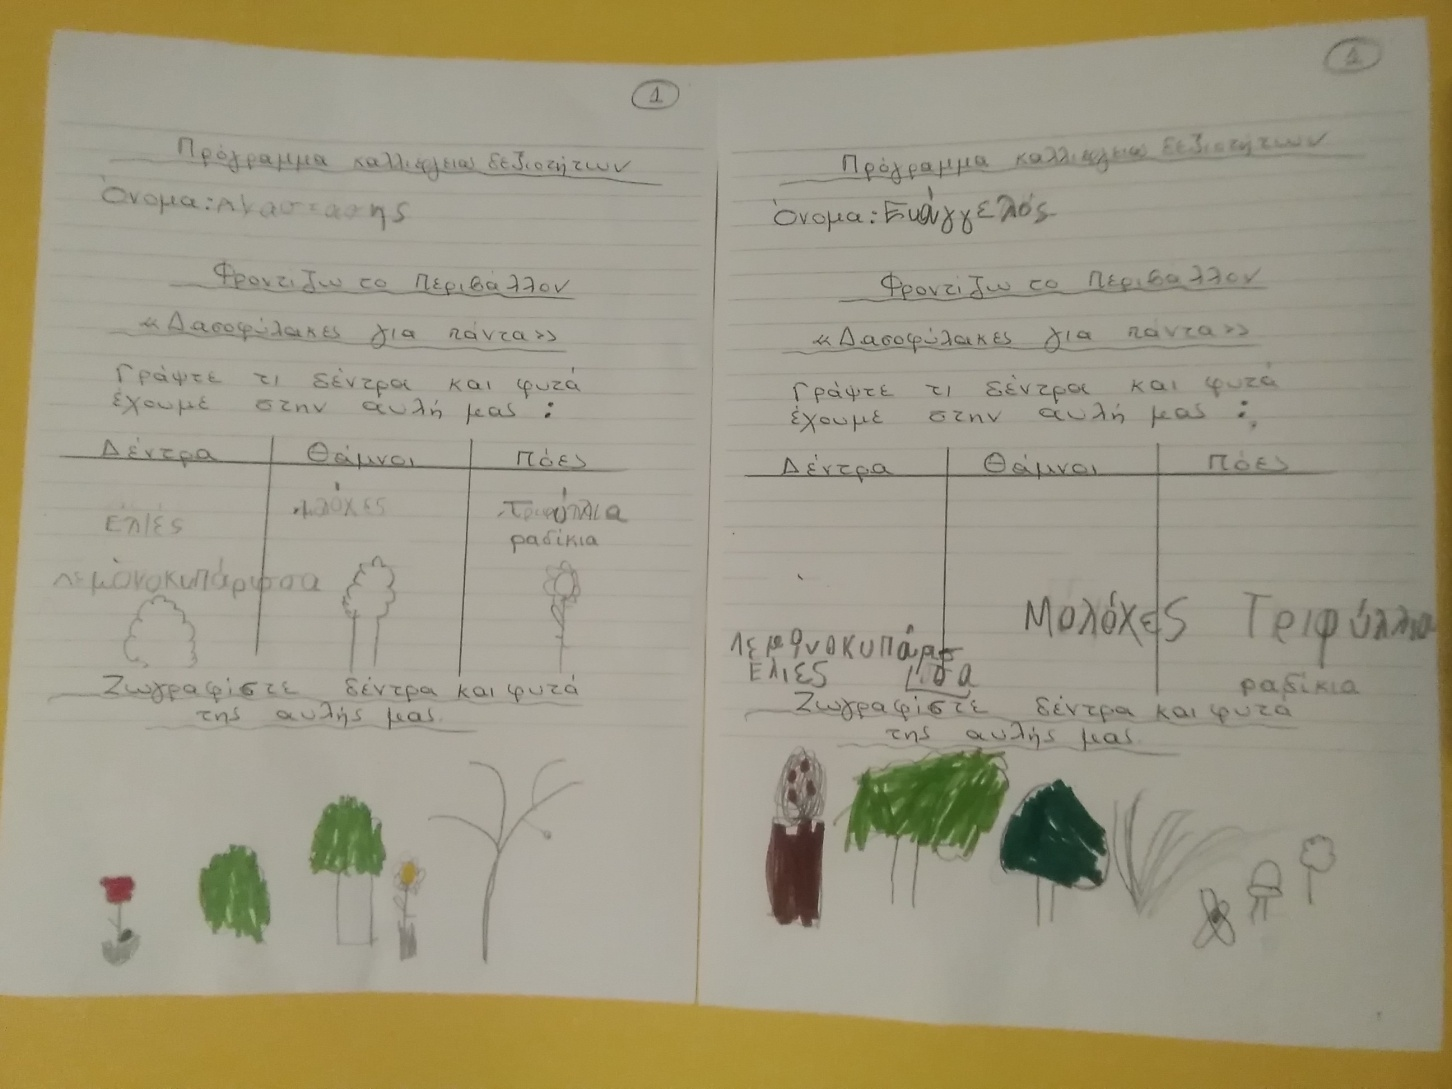 1
Πρόγραμμα καλλιέργεια δεξιοτήτων
Όνομα: Αναστασης
Φροντίζω το Περιβάλλον
«Δασοφύλακες για πάντα»
Γράψτε τι δέντρα και φυτά
έχουμε στην αυλή μας :
Δέντρα Θάμνοι Πόες
Ελιές
μλόχες
Τριφύλλια
ραδίκια
λεμονοκυπάρισσα
Ζωγραφίστε δέντρα και φυτά
της αυλής μας.
1
Πρόγραμμα καλλιέργεια δεξιοτήτων
Όνομα: Ευάγγελός
Φροντίζω το Περιβάλλον
«Δασοφύλακες για πάντα»
Γράψτε τι δέντρα και φυτά
έχουμε στην αυλή μας :
Δέντρα Θάμνοι Πόες
Μολόχες Τριφύλλια
Λεμονοκυπάρισσα
Ελιές
ραδίκια
Ζωγραφίστε δέντρα και φυτά
της αυλής μας.